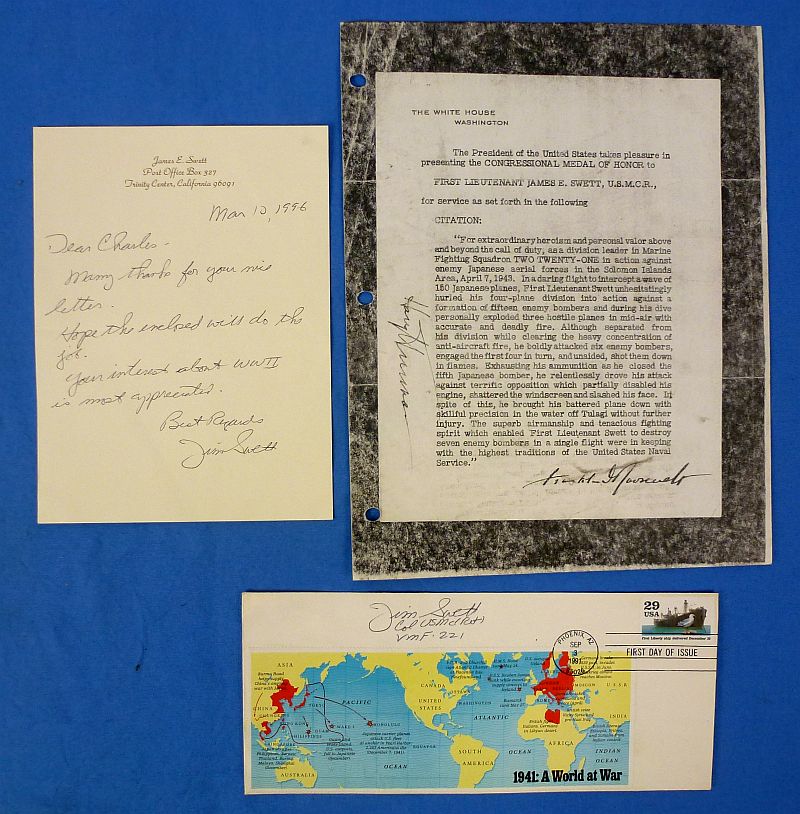 James E. Swett
Post Office Box 327
Trinity Center, California 96091
Mar 10, 1996
Dear Charles -
Many thanks for your nice
letter.
Hope the enclosed will do the
job.
Your interest about WWII
is most appreciated.
Best Regards
Jim Swett
THE WHITE HOUSE
WASHINGTON
The President of the United States takes pleasure in
presenting the CONGRESSIONAL MEDAL OF HONOR to
FIRST LIEUTENANT JAMES E. SWETT, U.S.M.C.R.,
for service as set forth in the following
CITATION:
"For extraordinary heroism and personal valor above
and beyond the call of duty, as a division leader in Marine
Fighting Squadron TWO TWENTY-ONE in action against
enemy Japanese aerial forces in the Solomon Islands
Area, April 7, 1943. In a daring flight to intercept a wave of
150 Japanese planes, First Lieutenant Swett unhesitatingly
hurled his four-plane division into action against a
formation of fifteen enemy bombers and during his dive
personally exploded three hostile planes in mid-air with
accurate and deadly fire. Although separated from
his division while clearing the heavy concentration of
anti-aircraft fire, he boldly attacked six enemy bombers,
engaged the first four in turn, and unaided, shot them down
in flames. Exhausting his ammunition as he closed the
fifth Japanese bomber, he relentlessly drove his attack
against terrific opposition which partially disabled his
engine, shattered the windscreen and slashed his face. In
spite of this, he brought his battered plane down with
skillful precision in the water off Tulagi without further
injury. The superb airmanship and tenacious fighting
spirit which enabled First Lieutenant Swett to destroy
seven enemy bombers in a single flight were in keeping
with the highest traditions of the United States Naval
Service."
Franklin D Roosevelt
Harry Truman
Jim Swett
Col USMC(Ret)
VMF-221
29
USA
First Liberty ship delivered December 30
PHOENIX, AZ
SEP
3
1991
FIRST DAY OF ISSUE
ASIA
CHINA
TOKYO
PACIFIC
WAKE I.
HONOLULU
GUAM
PHILIPPINES
HONG KONG
SINGAPORE
AUSTRALIA
OCEAN
EQUATOR
Japanese carrier planes
attack U.S. fleet
at anchor in Pearl Harbor.
2,403 Americans die
(December 7, 1941).
CANADA
OTTAWA
UNITED
STATES
WASHINGTON
ATLANTIC
OCEAN
SOUTH
AMERICA
ICELAND
MOSCOW
U.S.S.R.
AFRICA
INDIA
INDIAN
OCEAN
1941: A World at War